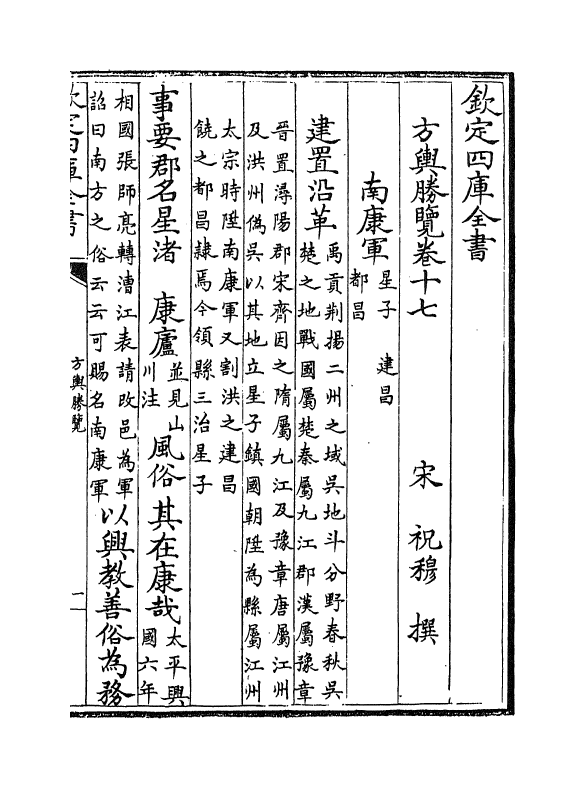 欽定四庫全書
方輿勝覽卷十七
宋 祝穆 撰
南康軍
星子 建昌
都昌
建置沿革
禹貢荆揚二州之域吳地斗分野春秋吳
楚之地戰國屬楚秦屬九江郡漢屬豫章
晉置潯陽郡宋齊因之隋屬九江及豫章唐屬江州
及洪州偽吳以其地立星子鎮國朝陞為縣屬江州
太宗時陞南康軍又割洪之建昌
饒之都昌隸焉今領縣三治星子
事要郡名星渚 康廬
並見山
川注
風俗其在康哉
太平興
國六年
相國張師亮轉漕江表請改邑為軍
詔曰南方之俗云云可賜名南康軍
以興教善俗為務
欽定四庫全書
方輿勝覽
一